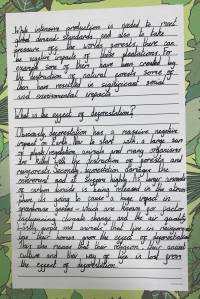 While intensive production is needed to meet
global demand standards and also to take
pressure off the worlds forests, there can
be negative impacts for these plantations. For
example some of them have been created by
the destruction of natural forests. Some of
them have resulted in significant social
and environmental impacts.
What is the effect of deforestation?
Obviously, deforestation has a massive negative
impact on Earth. For a start, with a large sum
of plants, vegetation, animals and many organisms
are killed with the destruction of forests and
rainforests. Secondly, deforestation damages the
astronomy. With large amounts
of carbon dioxide being released in the atmos
phere its going to cause a huge impact in
greenhouse gasses which are known for
climate change and the air quality.
Lastly, people and animals that live in rainforests
lose their homes upon the effect of deforestation.
This also means that their religion, their ancient
culture and their way of life is lost from
the effect of deforestation.